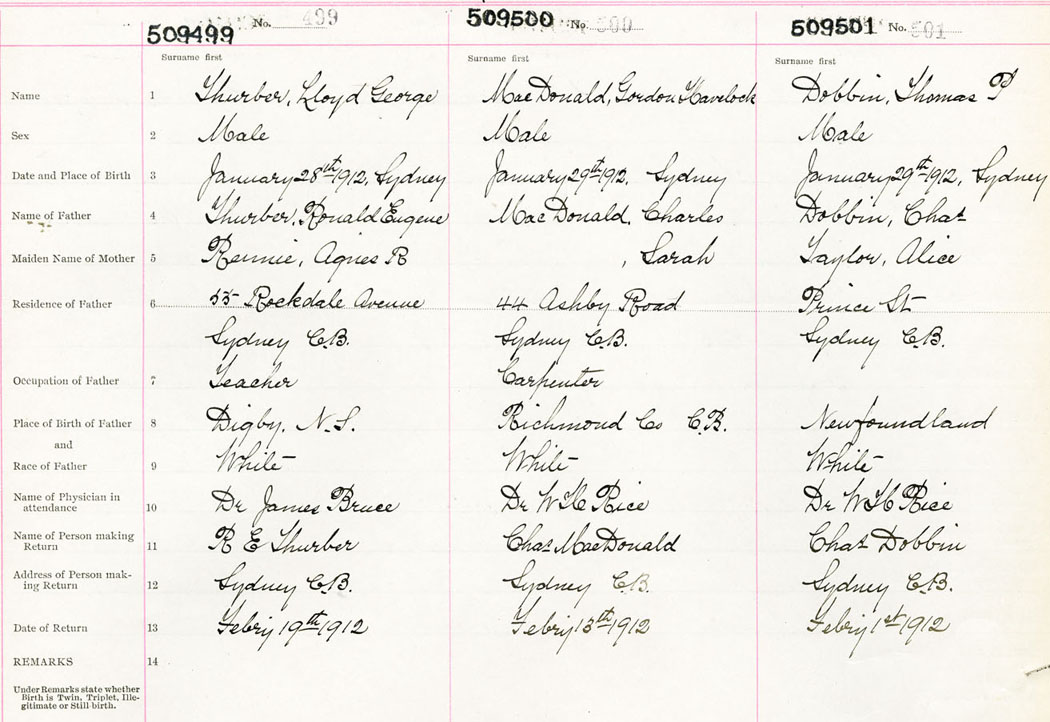 509499 No. 499 509500 No. 500 509501 No. 501
Surname first Surname first Surname first
Name 1 Thurber, Lloyd George MacDonald, Gordon Havelock Dobbin, Thomas P
Sex 2 Male Male Male
Date and Place of Birth 3 January 28th 1912, Sydney January 29th 1912, Sydney January 29th 1912, Sydney
Name of Father 4 Thurber, Ronald Eugene MacDonald, Charles Dobbin, Chas
Maiden Name of Mother 5 Rennie, Agnes R , Sarah Taylor, Alice
Residence of Father 6 55 Rockdale Avenue 44 Ashby Road Prince St
Sydney C.B. Sydney C.B. Sydney C.B.
Occupation of Father 7 Teacher Carpenter
Place of Birth of Father 8 Digby. N.S. Richmond Co C.B. Newfoundland
and
Race of Father 9 White White White
Name of Physician in
attendance 10 Dr James Bruce Dr W H Rice Dr W H Rice
Name of Person making
Return 11 R E Thurber Chas MacDonald Chas Dobbin
Address of Person mak-
ing Return 12 Sydney C.B. Sydney C.B. Sydney C.B.
Date of Return 13 Febry 19th 1912 Febry 13th 1912 Febry 1st 1912
REMARKS 14
Under Remarks state whether
Birth is Twin, Triplet, Ille-
gitimate or Still birth.